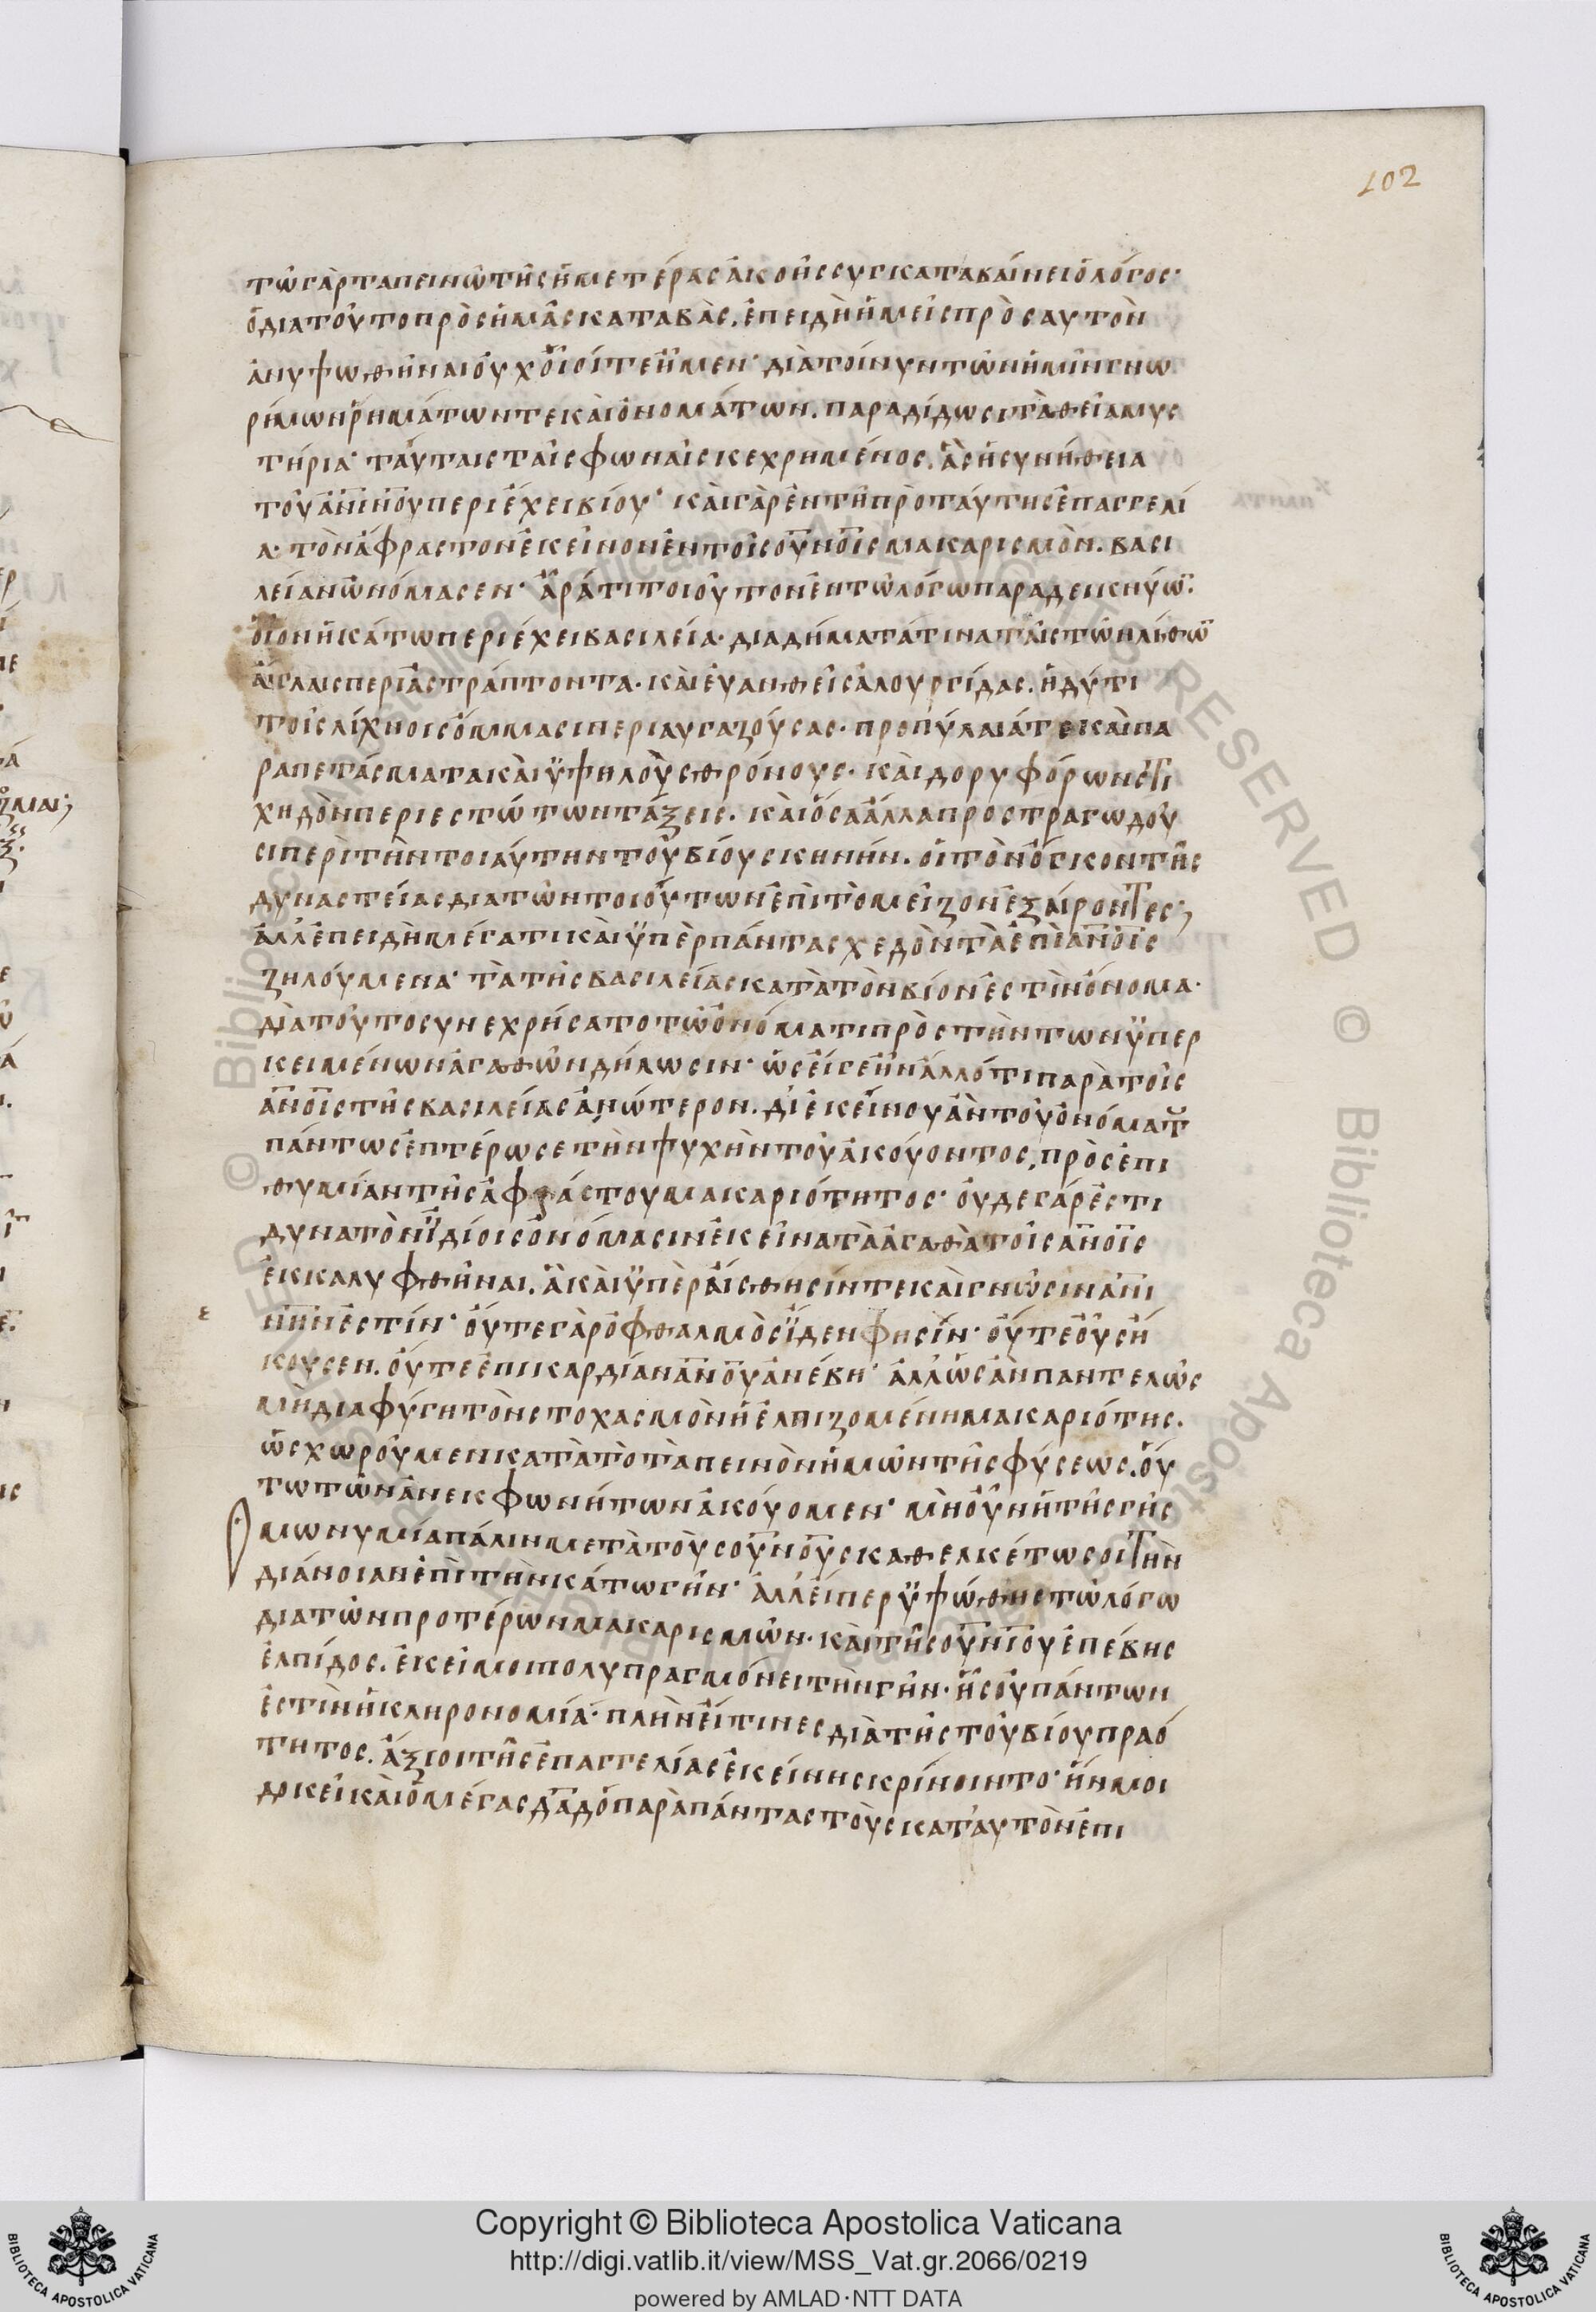 102
τῶ γὰρ ταπεινῶ τῆς ἡμετέρας ἀκοῆς συγκαταβαίνει ὁ λόγος·
ὁ διατοῦτο πρὸς ἡμᾶς καταβὰς. ἐπειδὴ ἡμεῖς πρὸς αὐτὸν
ἀνυψωθῆναι οὐχ οἷοί τε ἦμεν· διὰ τοίνυν τῶν ἡμῖν γνω
ρίμων ῥημάτων τε καὶ ὀνομάτων. παραδίδωσι τὰ θεῖα μυς
τήρια· ταύταις ταῖς φωναῖς κεχρημένος. ἃς ἡ συνήθεια
τοῦ ἀνίνου περιέχει βίου· καὶ γὰρ ἐν τῆ πρὸ ταύτης ἐπαγγελί
α· τὸν ἄφραστον ἐκεῖνον ἐν τοῖς οὐνοῖς μακαρισμὸν. βασι
λείαν ὠνόμασεν· ἆρά τι τοιοῦτον ἐν τῶ λόγω παραδεικνύω̅.
οἷον ἡ κάτω περιέχει βασιλεία· διαδήματά τινα ταῖς τῶν λίθω̅
αἴγλαις περιαστράπτοντα. καὶ εὐανθεῖς ἁλουργίδας. ἡδύ τι
τοῖς λίχνοις ὄμμασιν περιαυγαζούσας· προπύλαιά τε καὶ πα
ραπετάσματα καὶ ὑψηλοὺς θρόνους· καὶ δορυφόρων στι
χηδὸν περιεστώτων τάξεις. καὶ ὅσα ἄλλα προστραγωδοῦ
σι περὶ τὴν τοιαύτην τοῦ βίου σκηνήν. οἱ τὸν ὄγκον τῆς
δυναστείας διὰ τῶν τοιούτων ἐπὶ τὸ μεῖζον ἐξαίροντες;
ἀλλ' ἐπειδὴ μέγα τι καὶ ὑπὲρ πάντα σχεδὸν τὰ ἐπὶ ἀνοῖς
ζηλούμενα· τὰ τῆς βασιλείας κατὰ τὸν βίον ἐστὶν ὄνομα·
διατοῦτο συνεχρήσατο τῶ ὀνόματι πρὸς τὴν των ὑπερ
κειμένων ἀγαθῶν δήλωσιν· ὡς εἴγε ἦν ἄλλό τι παρὰ τοῖς
ἀνοῖς τῆς βασιλείας ἀνώτερον. δι' ἐκείνου ἂν τοῦ ὀνόματ
πάντως ἐπτέρωσε τὴν ψυχὴν τοῦ ἀκούοντος, πρὸς ἐπι
θυμίαν τῆς ἀφράστου μακαριότητος· οὐδε γάρ ἐστι
δυνατὸν ἰδίοις ὀνόμασιν ἐκεῖνα τὰ ἀγαθὰ τοῖς ἀνοῖς
ἐκκαλυφθῆναι. ἃ καὶ ὑπὲρ αἴσθησίν τε καὶ γνῶσιν ἀνι
νην ἐστίν· οὔτε γὰρ ὀφθαλμὸς ἴδεν φησίν· οὔτε οὖς ἤ
κουσεν. οὔτε ἐπι καρδίαν ἀνου ἀνέβη· ἀλλ' ὡς ἂν παντελῶς
μὴ διαφύγη τὸν στοχασμὸν ἡ ἐλπιζομένη μακαριότης.
ὡς χωροῦμεν κατὰ τὸ ταπεινὸν ἡμῶν τῆς φύσεως. οὕ
τω τῶν ἀνεκφωνήτων ἀκούομεν· μὴ οὖν ἡ τῆς γῆς
ὁμωνυμία πάλιν μετὰ τοὺς οὐνοὺς καθελκέτω σοι τὴν
διάνοιαν ἐπὶ τὴν κάτω γῆν· ἀλλ' εἴπερ ὑψώθης τῶ λόγω
διὰ τῶν προτέρων μακαρισμῶν· καὶ τῆς οὐνίου ἐπέβης
ἐλπίδος. ἐκεῖ μοι πολυπραγμόνει τὴν γῆν· ἧς οὐ πάντων
ἐστὶν ἡ κληρονομία· πλὴν εἴ τινες διὰ τῆς τοῦ βίου πραό
τητος. ἄξιοι τῆς ἐπαγγελίας ἐκείνης κρίνοιντο· ἥν μοι
δοκεῖ καὶ ὁ μέγας δαδ ὁ παρὰ πάντας τοὺς κατ' αυτὸν ἐπι
Copyright © Biblioteca Apostolica Vaticana
http://digi.vatlib.it/view/MSS_Vat.gr.2066/0219
powered by AMLAD·NTT DATA
BIBLIOTECA APOSTOLICA VATICANA
BIBLIOTECA APOSTOLICA VATICANA